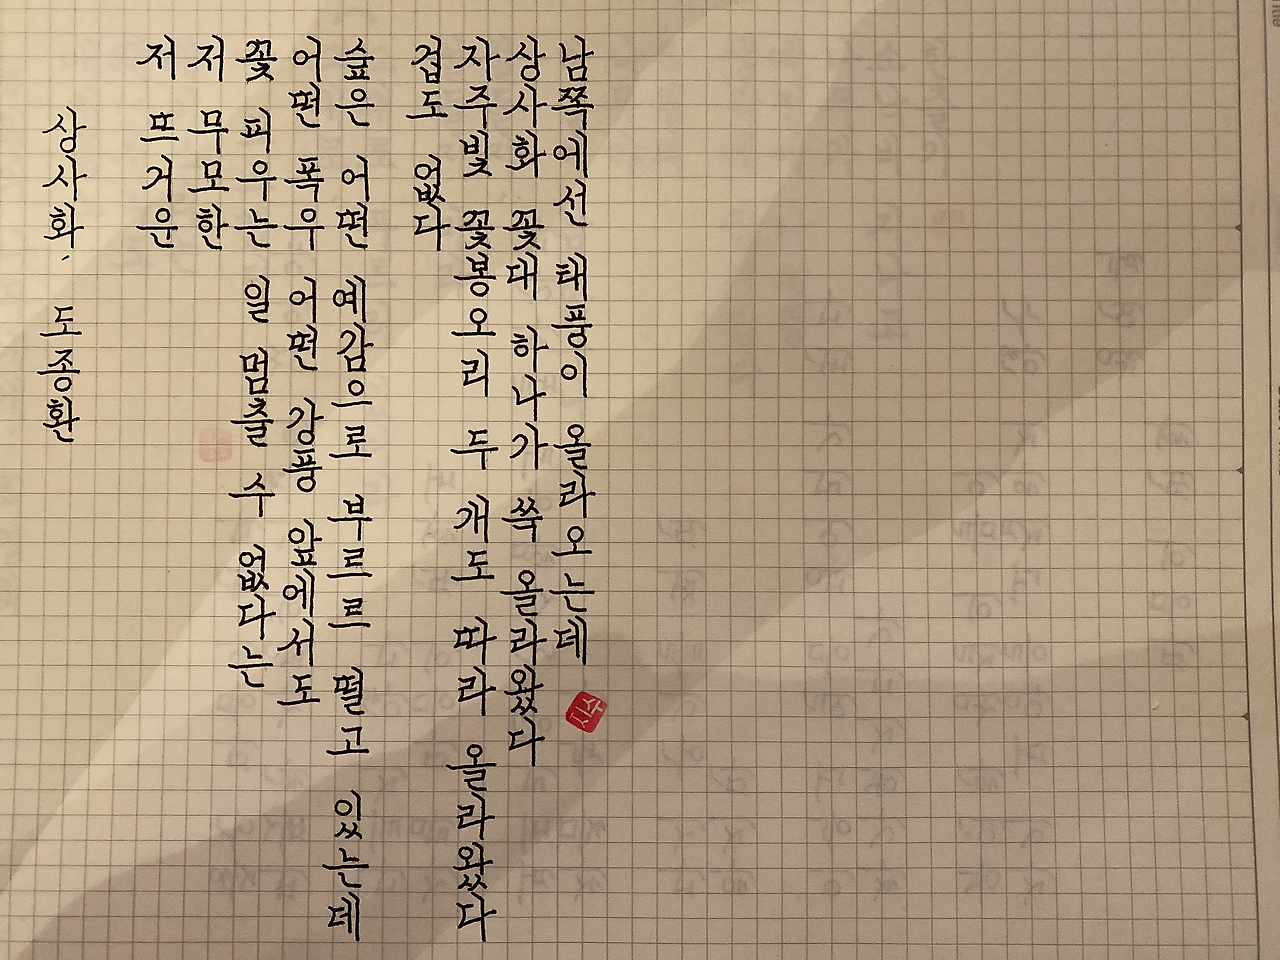 남쪽에선 태풍이 올라오는데
상사화 꽃대 하나가 쑥 올라왔다
자주빛 꽃봉오리 두 개도 따라 올라왔다
겁도 없다
숲은 어떤 예감으로 부르르 떨고 있는데
어떤 폭우 어떤 강풍 앞에서도
꽃 피우는 일 멈출 수 없다는
저 무모한
저 뜨거운
상사화, 도종환